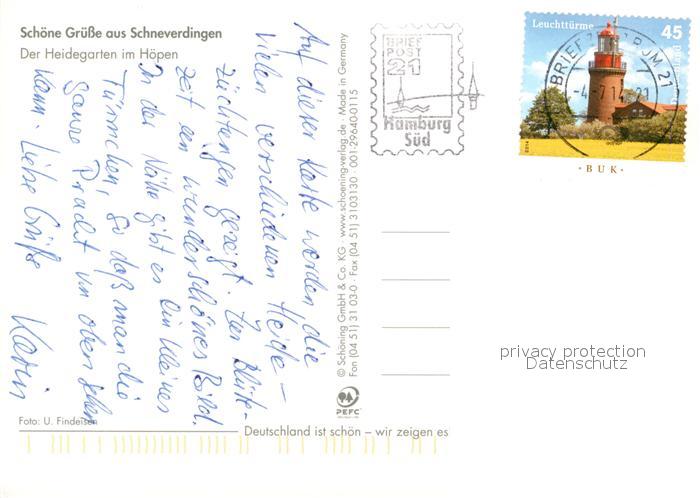 Schöne Grüße aus Schneverdingen
Der Heidegarten im Höpen
Auf dieser Karte werden die
vielen verschiedenen Heide-
züchtungen gezeigt. Zur Blüte-
zeit ein wunderschönes Bild.
In der Nähe gibt es ein kleines
Türmchen, so daß man die
ganze Pracht von oben sehen
kann. Liebe Grüße
Karin
Foto: U. Findeisen
© Schöning GmbH & Co. KG · www.schoening-verlag.de · Made in Germany
Fon (04 51) 31 03-0 · Fax (04 51) 3103130 · 001-29640-0115
PEFC
Deutschland ist schön – wir zeigen es
BRIEF
POST
21
Hamburg
Süd
Leuchttürme 45
Deutschland
BRIEFZENTRUM 21
-4.-7.14-21
2014
· BUK ·
privacy protection
Datenschutz